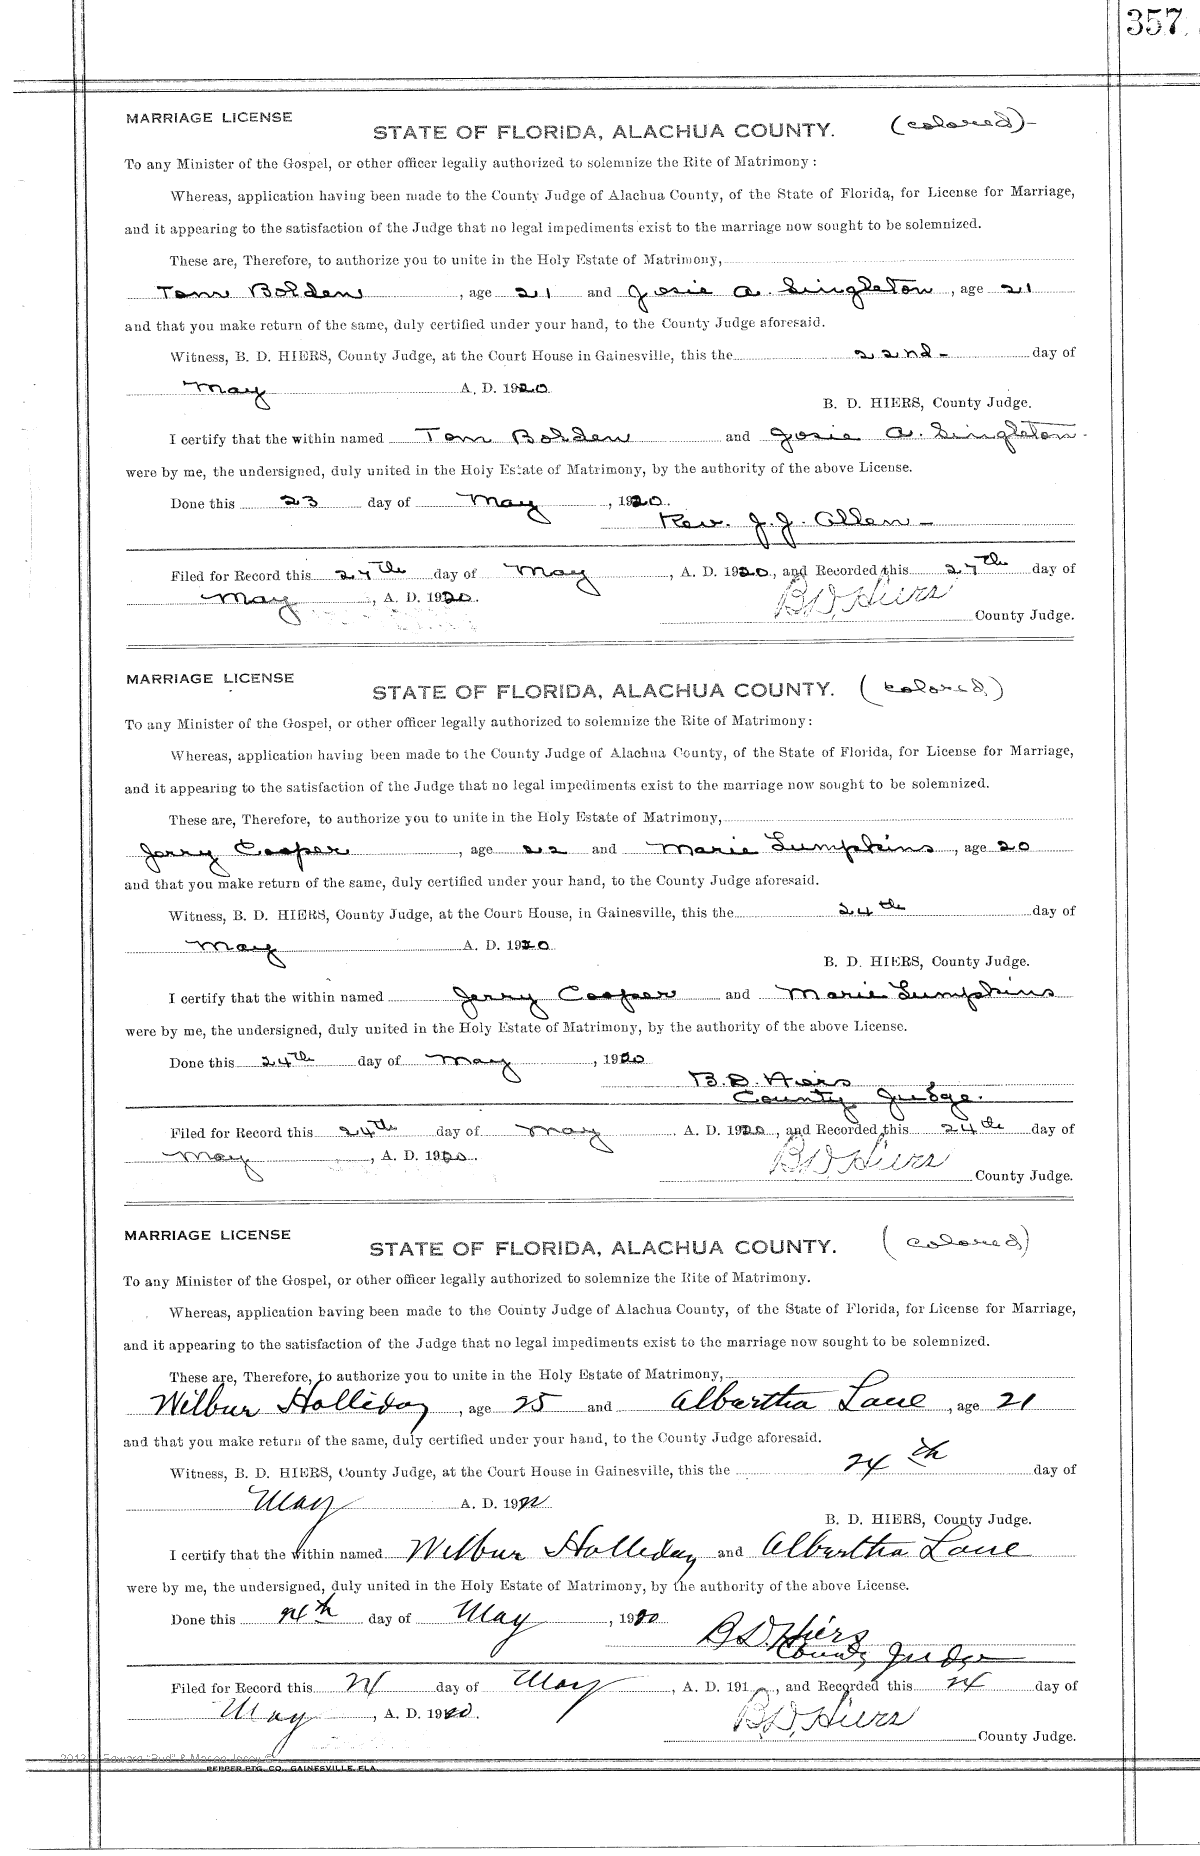 357
MARRIAGE LICENSE
STATE OF FLORIDA, ALACHUA COUNTY. (colored)-
To any Minister of the Gospel, or other officer legally authorized to solemnize the Rite of Matrimony:
Whereas, application having been made to the County Judge of Alachua County, of the State of Florida, for License for Marriage,
and it appearing to the satisfaction of the Judge that no legal impediments exist to the marriage now sought to be solemnized.
These are, Therefore, to authorize you to unite in the Holy Estate of Matrimony,
Tom Bolden, age 21 and Josie A. Singleton, age 21
and that you make return of the same, duly certified under your hand, to the County Judge aforesaid.
Witness, B. D. HIERS, County Judge, at the Court House in Gainesville, this the 22nd- day of
May A. D. 1920
B. D. HIERS, County Judge.
I certify that the within named Tom Bolden and Josie A. Singleton-
were by me, the undersigned, duly united in the Holy Estate of Matrimony, by the authority of the above License.
Done this 23 day of May, 1920.
Rev. J. J. Allen-
Filed for Record this 27th day of May, A. D. 1920, and Recorded this 27th day of
May, A. D. 1920.
B.D. Hiers
County Judge.
MARRIAGE LICENSE
STATE OF FLORIDA, ALACHUA COUNTY. (colored)
To any Minister of the Gospel, or other officer legally authorized to solemnize the Rite of Matrimony:
Whereas, application having been made to the County Judge of Alachua County, of the State of Florida, for License for Marriage,
and it appearing to the satisfaction of the Judge that no legal impediments exist to the marriage now sought to be solemnized.
These are, Therefore, to authorize you to unite in the Holy Estate of Matrimony,
Jerry Cooper, age 22 and Marie Lumpkins, age 20
and that you make return of the same, duly certified under your hand, to the County Judge aforesaid.
Witness, B. D. HIERS, County Judge, at the Court House, in Gainesville, this the 24th day of
May A. D. 1920
B. D. HIERS, County Judge.
I certify that the within named Jerry Cooper and Marie Lumpkins
were by me, the undersigned, duly united in the Holy Estate of Matrimony, by the authority of the above License.
Done this 24th day of May, 1920
B.D. Hiers
County Judge.
Filed for Record this 24th day of May A. D. 1920, and Recorded this 24th day of
May, A. D. 1920.
B.D. Hiers
County Judge.
MARRIAGE LICENSE
STATE OF FLORIDA, ALACHUA COUNTY. (colored)
To any Minister of the Gospel, or other officer legally authorized to solemnize the Rite of Matrimony.
Whereas, application having been made to the County Judge of Alachua County, of the State of Florida, for License for Marriage,
and it appearing to the satisfaction of the Judge that no legal impediments exist to the marriage now sought to be solemnized.
These are, Therefore, to authorize you to unite in the Holy Estate of Matrimony,
Wilbur Holliday, age 25 and Albertha Lane, age 21
and that you make return of the same, duly certified under your hand, to the County Judge aforesaid.
Witness, B. D. HIERS, County Judge, at the Court House in Gainesville, this the 24th day of
May A. D. 1920
B. D. HIERS, County Judge.
I certify that the within named Wilbur Holliday and Albertha Lane
were by me, the undersigned, duly united in the Holy Estate of Matrimony, by the authority of the above License.
Done this 24th day of May, 1920
B.D. Hiers
County Judge
Filed for Record this 24 day of May, A. D. 191 , and Recorded this 24 day of
May, A. D. 1920.
B.D. Hiers
County Judge.
PEPPER PTG. CO., GAINESVILLE, FLA.